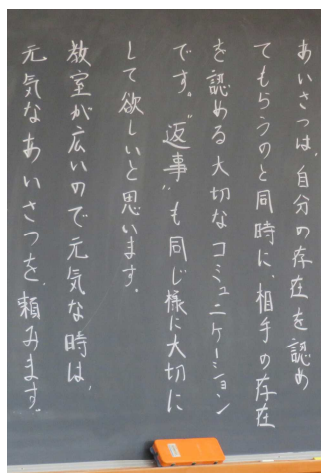 あいさつは、自分の存在を認め
てもらうのと同時に、相手の存在
を認める大切なコミュニケーション
です。“返事”も同じ様に大切に
して欲しいと思います。
教室が広いので元気な時は、
元気なあいさつを、頼みます。